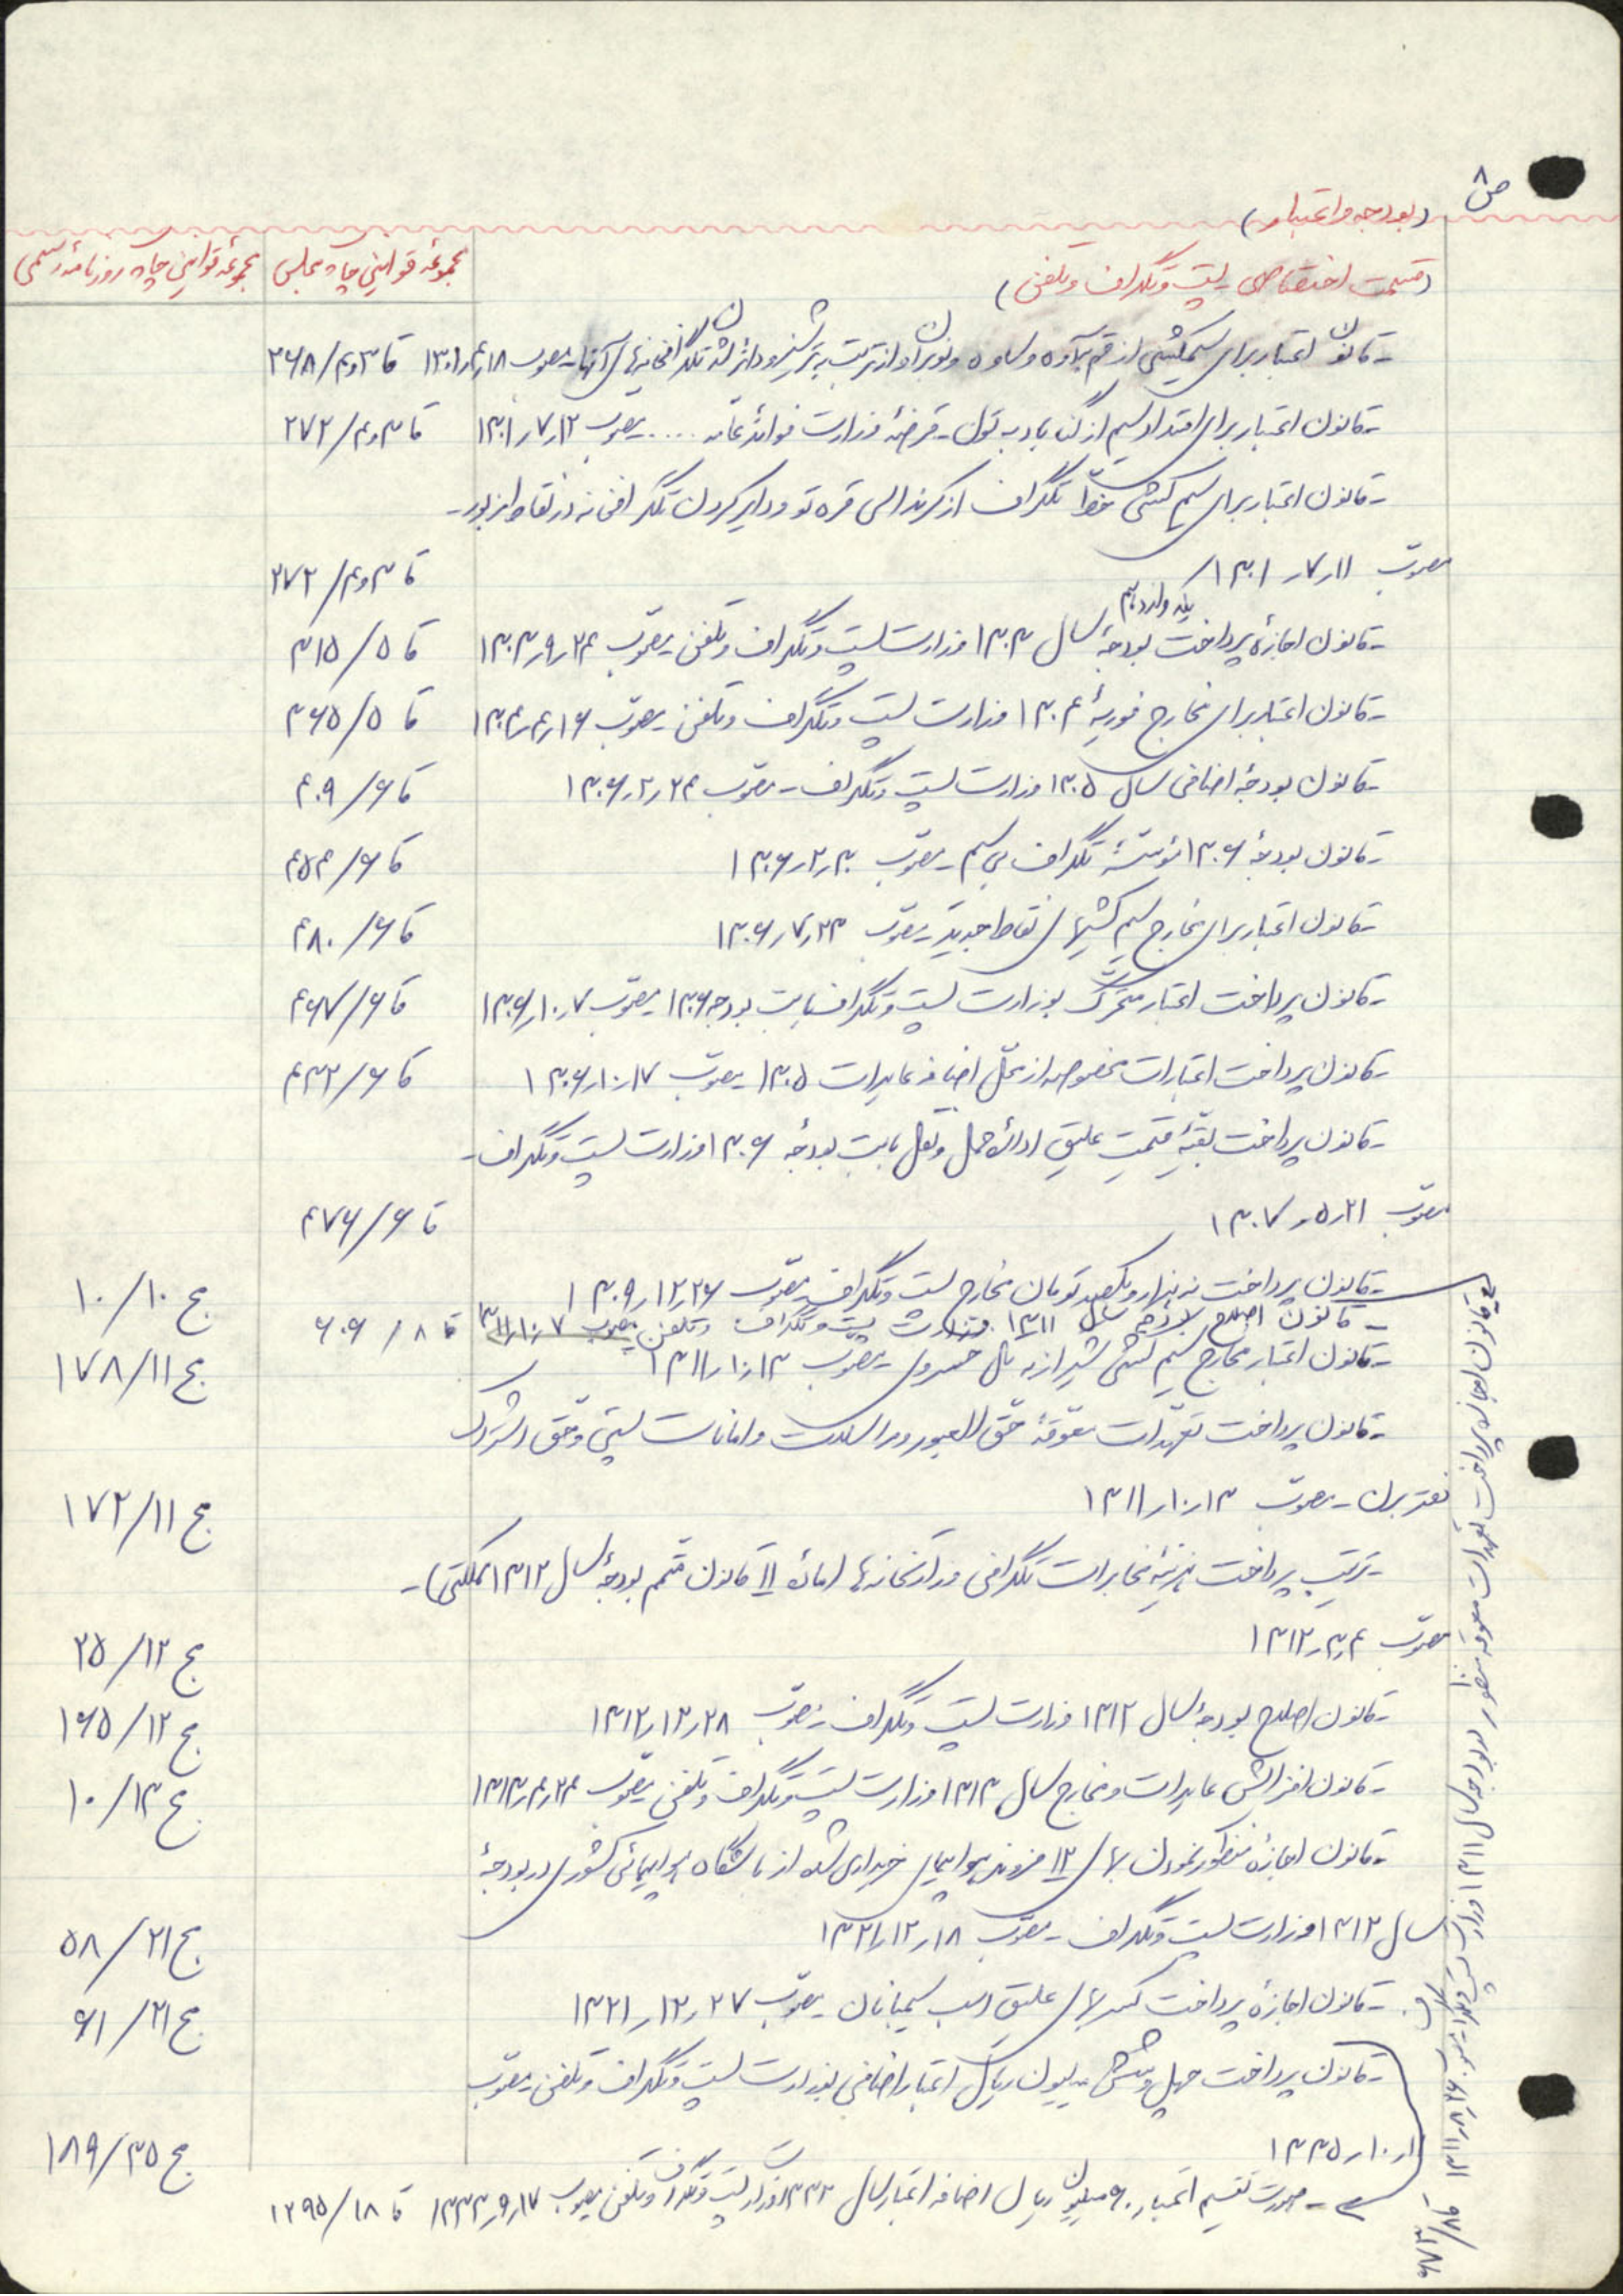 ص ۸
(بودجه و اعتبار)
(قسمت اختصاصی پست و تلگراف و تلفن)
مجموعه قوانین چاپ مجلس
مجموعه قوانین چاپ روزنامه رسمی
- قانون اعتبار برای سیمکشی از قم به آوه و ساوه و نوبران و از تربت به ترشیز و دائر شدن تلگرافخانه‌های آنها - مصوب ۱۸ر۴ر۱۳۰۱ قا ۳و۴/۲۶۸
- قانون اعتبار برای امتداد سیم از گناباد به تون - قرضهٔ وزارت فوائد عامه .... مصوب ۱۲ر۷ر۱۳۰۱ قا ۳و۴/۲۷۲
- قانون اعتبار برای سیم کشی خط تلگراف از کرند الی قره تو و دایر کردن تلگرافخانه در نقاط مزبور -
مصوب ۱۱ر۷ر۱۳۰۱ قا ۳و۴/۲۷۲
- قانون اجازه پرداخت یک دوازدهم بودجهٔ سال ۱۳۰۳ وزارت پست و تلگراف و تلفن - مصوب ۲۴ر۹ر۱۳۰۳ قا ۵/۳۱۵
- قانون اعتبار برای مخارج فوریهٔ ۱۳۰۴ وزارت پست و تلگراف و تلفن - مصوب ۱۶ر۴ر۱۳۰۴ قا ۵/۳۶۵
- قانون بودجهٔ اضافی سال ۱۳۰۵ وزارت پست و تلگراف - مصوب ۲۴ر۲ر۱۳۰۶ قا ۶/۴۰۹
- قانون بودجهٔ ۱۳۰۶ مؤسسهٔ تلگراف بی سیم - مصوب ۳۰ر۲ر۱۳۰۶ قا ۶/۴۵۴
- قانون اعتبار برای مخارج سیم کشیهای نقاط جدید - مصوب ۲۳ر۷ر۱۳۰۶ قا ۶/۴۸۰
- قانون پرداخت اعتبار متحرک بوزارت پست و تلگراف بابت بودجه ۱۳۰۶ مصوب ۷ر۱۰ر۱۳۰۶ قا ۶/۴۶۷
- قانون پرداخت اعتبارات مخصوصه از محل اضافه عایدات ۱۳۰۵ - مصوب ۱۷ر۱۰ر۱۳۰۶ قا ۶/۴۳۲
- قانون پرداخت بقیهٔ قیمت علیق ادارهٔ حمل و نقل بابت بودجهٔ ۱۳۰۶ وزارت پست و تلگراف -
مصوب ۲۱ر۵ر۱۳۰۷ قا ۶/۴۷۶
- قانون پرداخت نه هزار و یکصد تومان مخارج پست و تلگراف مصوب ۲۶ر۱۲ر۱۳۰۹ ج ۱۰/۱۰
- قانون اصلاح بودجه سال ۱۳۱۱ وزارت پست و تلگراف و تلفن مصوب ۷ر۱۰ر۱۳۱۱ قا ۸/۶۰۶
- قانون اعتبار مخارج سیم کشی شیراز به تل خسروی - مصوب ۱۳ر۱۰ر۱۳۱۱ ج ۱۱/۱۷۸
- قانون پرداخت تعهدات معوقهٔ حق العبور مراسلات و امانات پستی و حق اشتراک
دفتر برن - مصوب ۱۳ر۱۰ر۱۳۱۱ ج ۱۱/۱۷۲
- ترتیب پرداخت هزینهٔ مخابرات تلگرافی وزارتخانه‌ها (مادهٔ ۱۱ قانون متمم بودجهٔ سال ۱۳۱۲ مملکتی) -
مصوب ۴ر۳ر۱۳۱۲ ج ۱۲/۲۵
- قانون اصلاح بودجهٔ سال ۱۳۱۲ وزارت پست و تلگراف - مصوب ۲۸ر۱۲ر۱۳۱۲ ج ۱۲/۱۶۵
- قانون افزایش عایدات و مخارج سال ۱۳۱۳ وزارت پست و تلگراف و تلفن - مصوب ۲۴ر۴ر۱۳۱۳ ج ۱۳/۱۰
- قانون اجازهٔ منظور نمودن بهای ۱۲ فروند هواپیمای خریداری شده از باشگاه هواپیمائی کشوری در بودجهٔ
سال ۱۳۱۲ وزارت پست و تلگراف - مصوب ۱۸ر۱۲ر۱۳۲۱ ج ۲۱/۵۸
- قانون اجازهٔ پرداخت کسر بهای علیق اسب سیمبانان - مصوب ۲۷ر۱۲ر۱۳۲۱ ج ۲۱/۶۱
- قانون پرداخت چهل و شش میلیون ریال اعتبار اضافی بوزارت پست و تلگراف و تلفن - مصوب
۱ر۱۰ر۱۳۳۵ ج ۳۵/۱۸۹
- صورت تقسیم اعتبار ۶۰ میلیون ریال اضافه اعتبار سال ۱۳۳۳ وزارت پست و تلگراف و تلفن مصوب ۱۷ر۹ر۱۳۳۳ قا ۱۸/۱۲۹۵
قانون اجازه پرداخت تعهدات معوقه منظور در بودجه سال ۱۳۱۱ وزارت پست و تلگراف